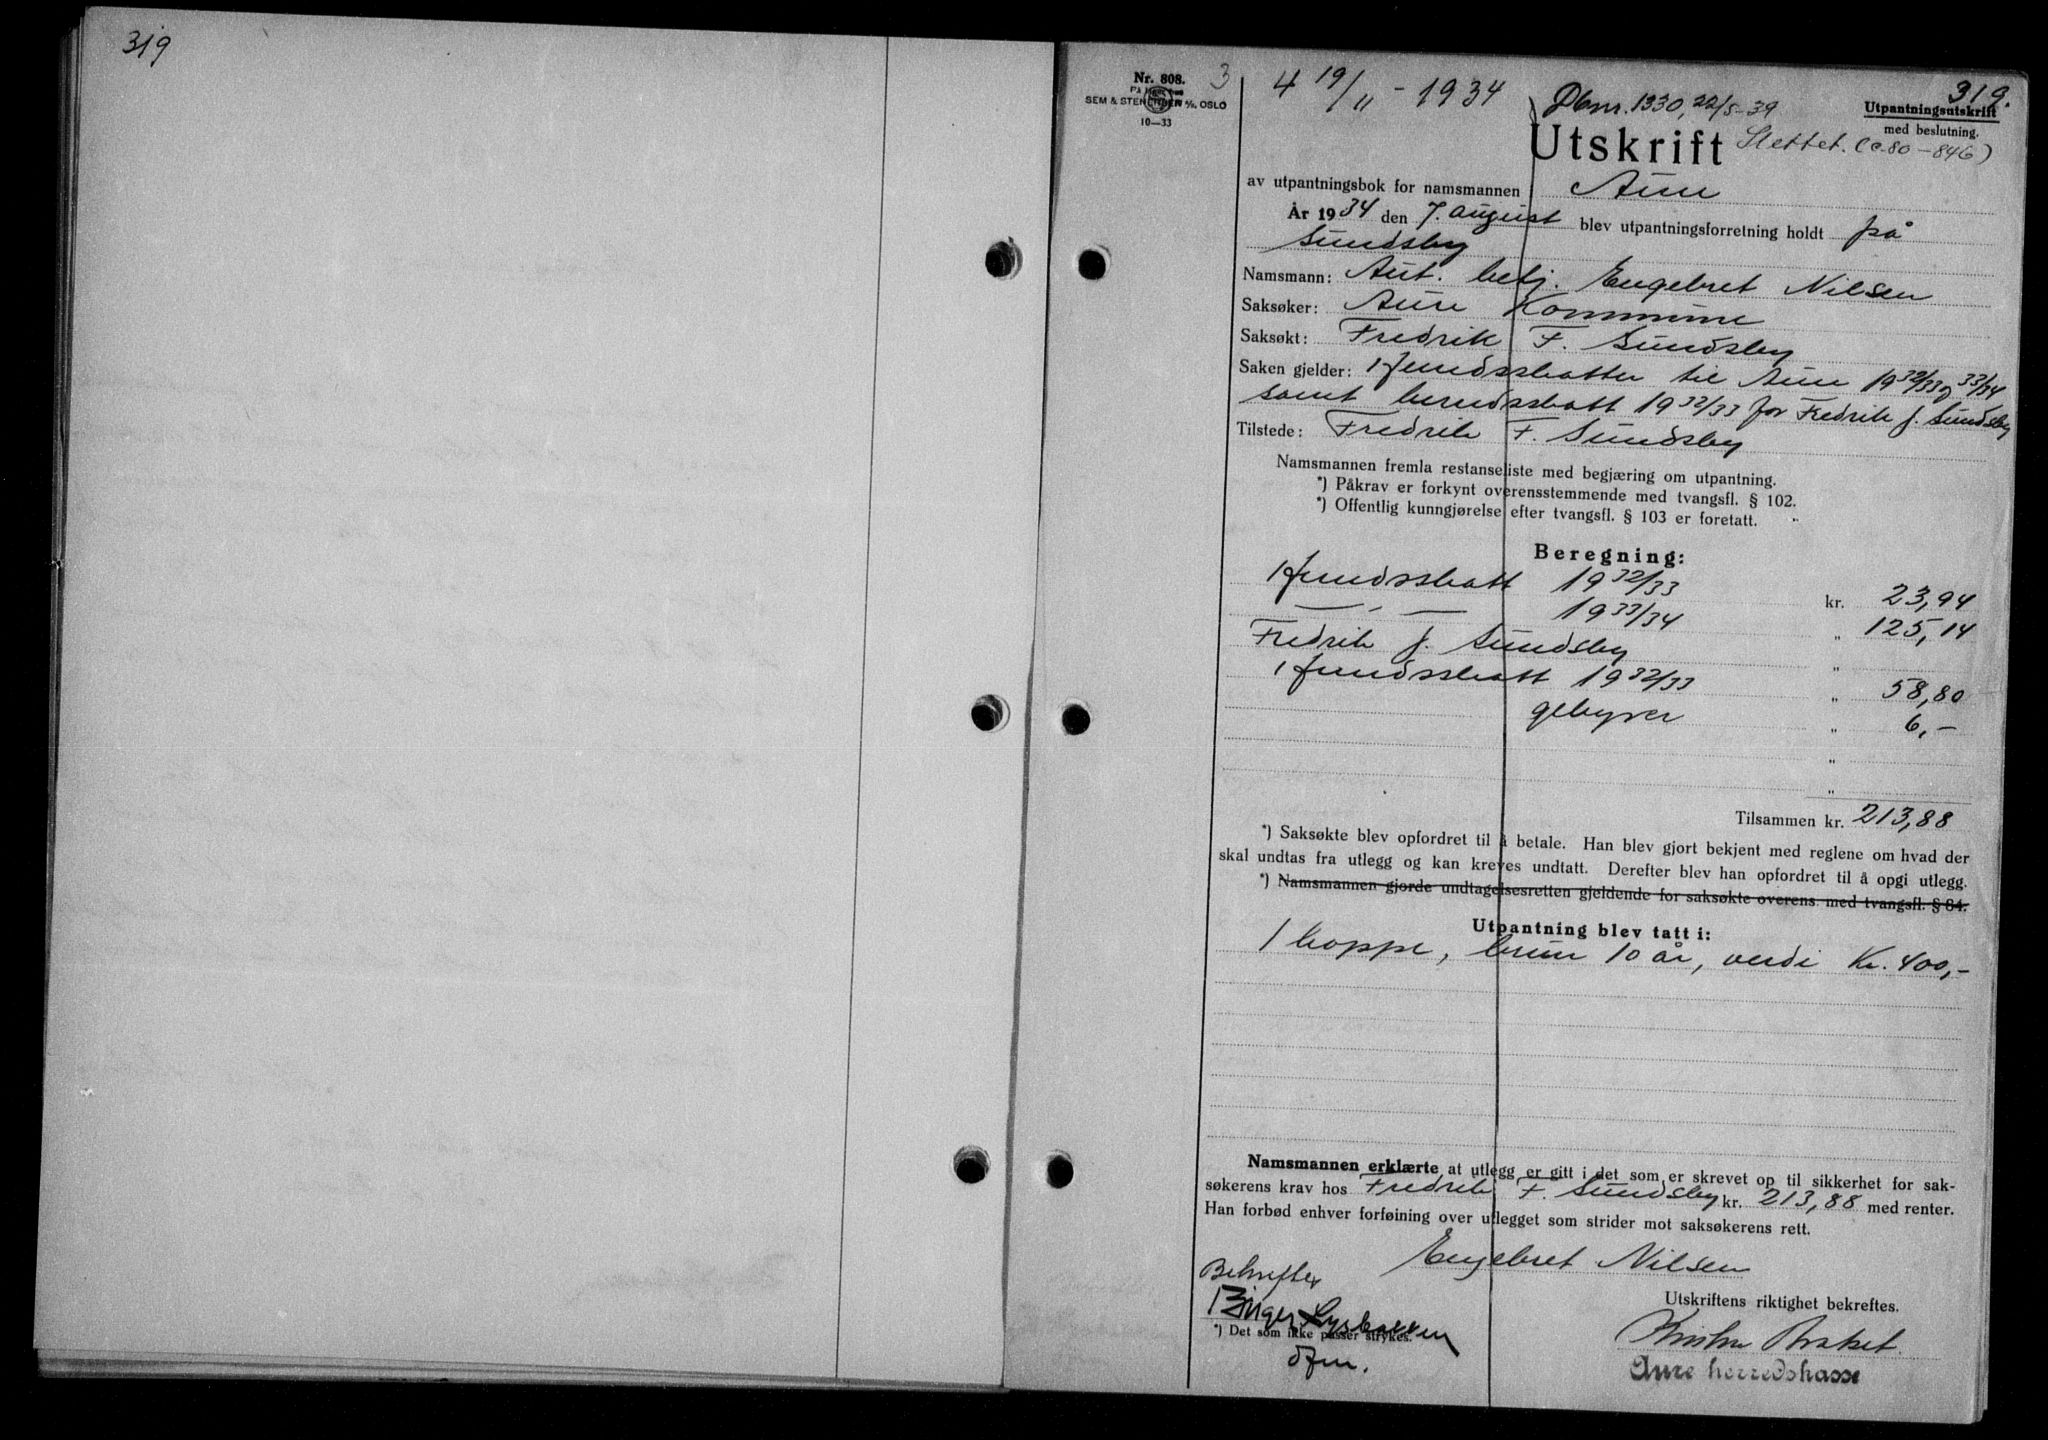 319
Nr. 808.
SEM & STENERSEN A/S. OSLO
10—33
3
4 19/11 - 1934
Dbnr. 1330, 22/5-39
319.
Utpantningsutskrift
med beslutning.
Utskrift
Slettet. (c. 80 - 846)
av utpantningsbok for namsmannen Aure
År 1934 den 7. august blev utpantningsforretning holdt på
Sundsby
Namsmann: Aut. betj. Engebret Nilsen
Saksøker: Aure Kommune
Saksøkt: Fredrik F. Sundsby
Saken gjelder: til Aure 1932/33 33/34
samt 1932/33 for Fredrik J. Sundsby
Tilstede: Fredrik F. Sundsby
Namsmannen fremla restanseliste med begjæring om utpantning.
*) Påkrav er forkynt overensstemmende med tvangsfl. § 102.
*) Offentlig kunngjørelse efter tvangsfl. § 103 er foretatt.
Beregning:
1932/33 kr. 23,94
— " — 1933/34 " 125,14
Fredrik J. Sundsby "
1932/33 " 58,80
gebyrer " 6,-
"
"
Tilsammen kr. 213,88
*) Saksøkte blev opfordret til å betale. Han blev gjort bekjent med reglene om hvad der
skal undtas fra utlegg og kan kreves undtatt. Derefter blev han opfordret til å opgi utlegg.
*) Namsmannen gjorde undtagelsesretten gjeldende for saksøkte overens. med tvangsfl. § 84.
Utpantning blev tatt i:
1 hoppe, brun 10 år, verdi Kr. 400,-
Namsmannen erklærte at utlegg er gitt i det som er skrevet op til sikkerhet for sak-
søkerens krav hos Fredrik F. Sundsby kr. 213,88 med renter.
Han forbød enhver forføining over utlegget som strider mot saksøkerens rett.
Engebret Nilsen
Bekreftes
Utskriftens riktighet bekreftes.
Birger Lysbakken
*) Det som ikke passer strykes.
Aure herredskasse